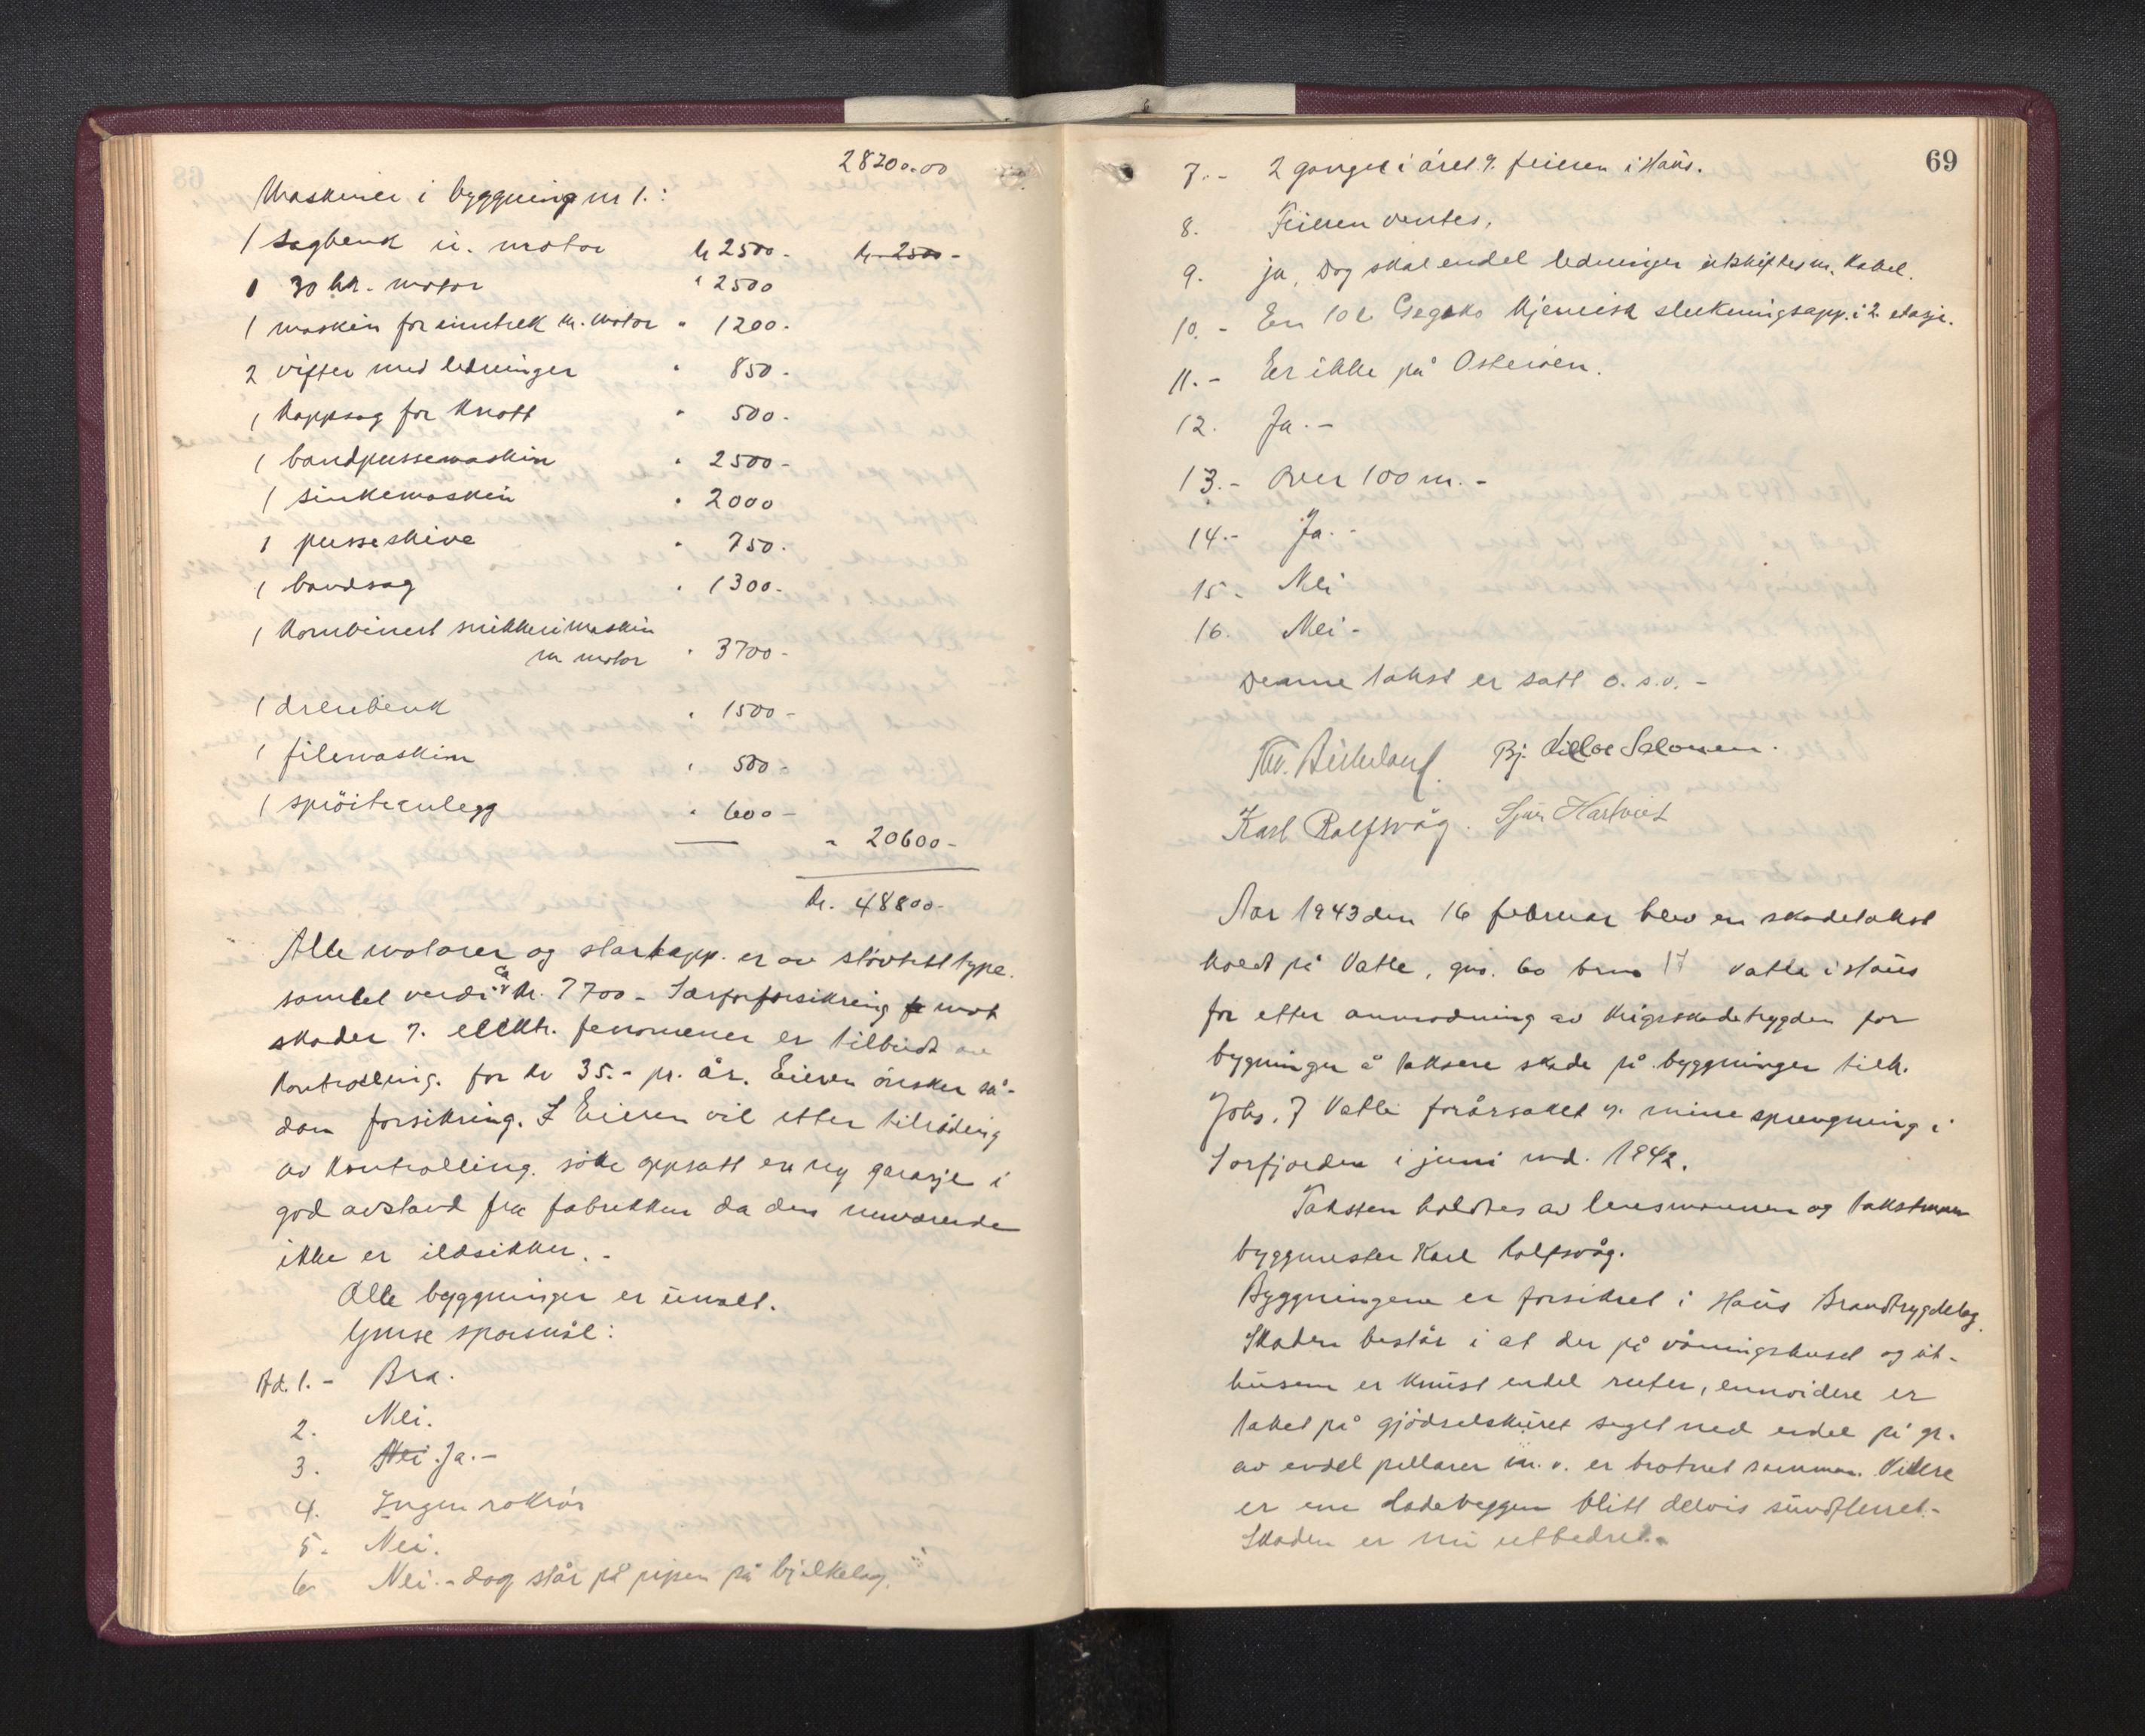 28200.00
Maskiner i byggning nr 1.:
1 sagbenk u. motor kr 2500.- kr. 2500-
1 30 hk. motor " 2500
1 maskin for inntrekk m. motor " 1200.-
2 vifter med ledninger " 850.-
1 kappsag for knott " 500.-
1 bandpussemaskin " 2500-
1 sinkemaskin " 2000
1 pusseskive " 750.
1 bandsag " 1300-
1 kombinert snikkerimaskin
m motor " 3700-
1 dreiebenk " 1500-
1 filemaskin " 500-
1 spröiteanlegg " 600-
" 20600-
kr. 48800-
Alle motorer og startapp. er av stövtett type.
samlet verdi ca kr. 7700- Særforsikring mot
skader v. elektr. fenomener er tilbudt av
kontrolling. for kr 35.- pr. år. Eieren önsker så-
dan forsikring. Eieren vil etter tilråding
av kontrolling. söke oppsatt en ny garasje i
god avstand fra fabrikken da den nuværende
ikke er ildsikker.-
Alle byggninger er umalt.
Ymse spörsmål:
Ad. 1.- Bra.
2. Nei.
3. Nei. Ja.-
4. Ingen rökrör
5. Nei.
6. Nei.- dog står på pipen på bjelkelag.
69
7.- 2 ganger i året v. feieren i Haus.
8. Feieren ventes.
9. ja, Dog skal endel ledninger utskiftes m. kabel.
10.- En 10 l. Gegeko kjemisk slukningsapp. i 2 etasje.
11.- Er ikke på Osteröen.
12. Ja.-
13.- Over 100 m.-
14.- Ja.-
15- Nei
16. Nei-
Denne takst er satt o.s.v.-
Bj. Salomon.
Karl Rolfsvåg. Sjur Hartveit
Aar 1943 den 16 februar blev en skadetakst
holdt på Vatle, gno. 60 brno 17 Vatle i Haus
for etter anmodning av Krigsskadetrygden for
bygninger å taksere skade på byggninger tilh.
Johs. J Vatle forårsaket v. minesprengning i
Sörfjorden i juni md. 1942.
Taksten holdtes av lensmannen og takstmann
byggmester Karl Rolfsvåg.
Byggningene er forsikret i Haus Brandtrygdelag.
Skaden består i at der på våningshuset og ut-
husene er knust endel ruter, ennvidere er
taket på gjödselskuret seget ned endel på gr.
av endel pillarer m.v. er brotnet sammen. Videre
er ene ladeveggen blitt delvis sundflerret.-
Skaden er nu utbedret.-